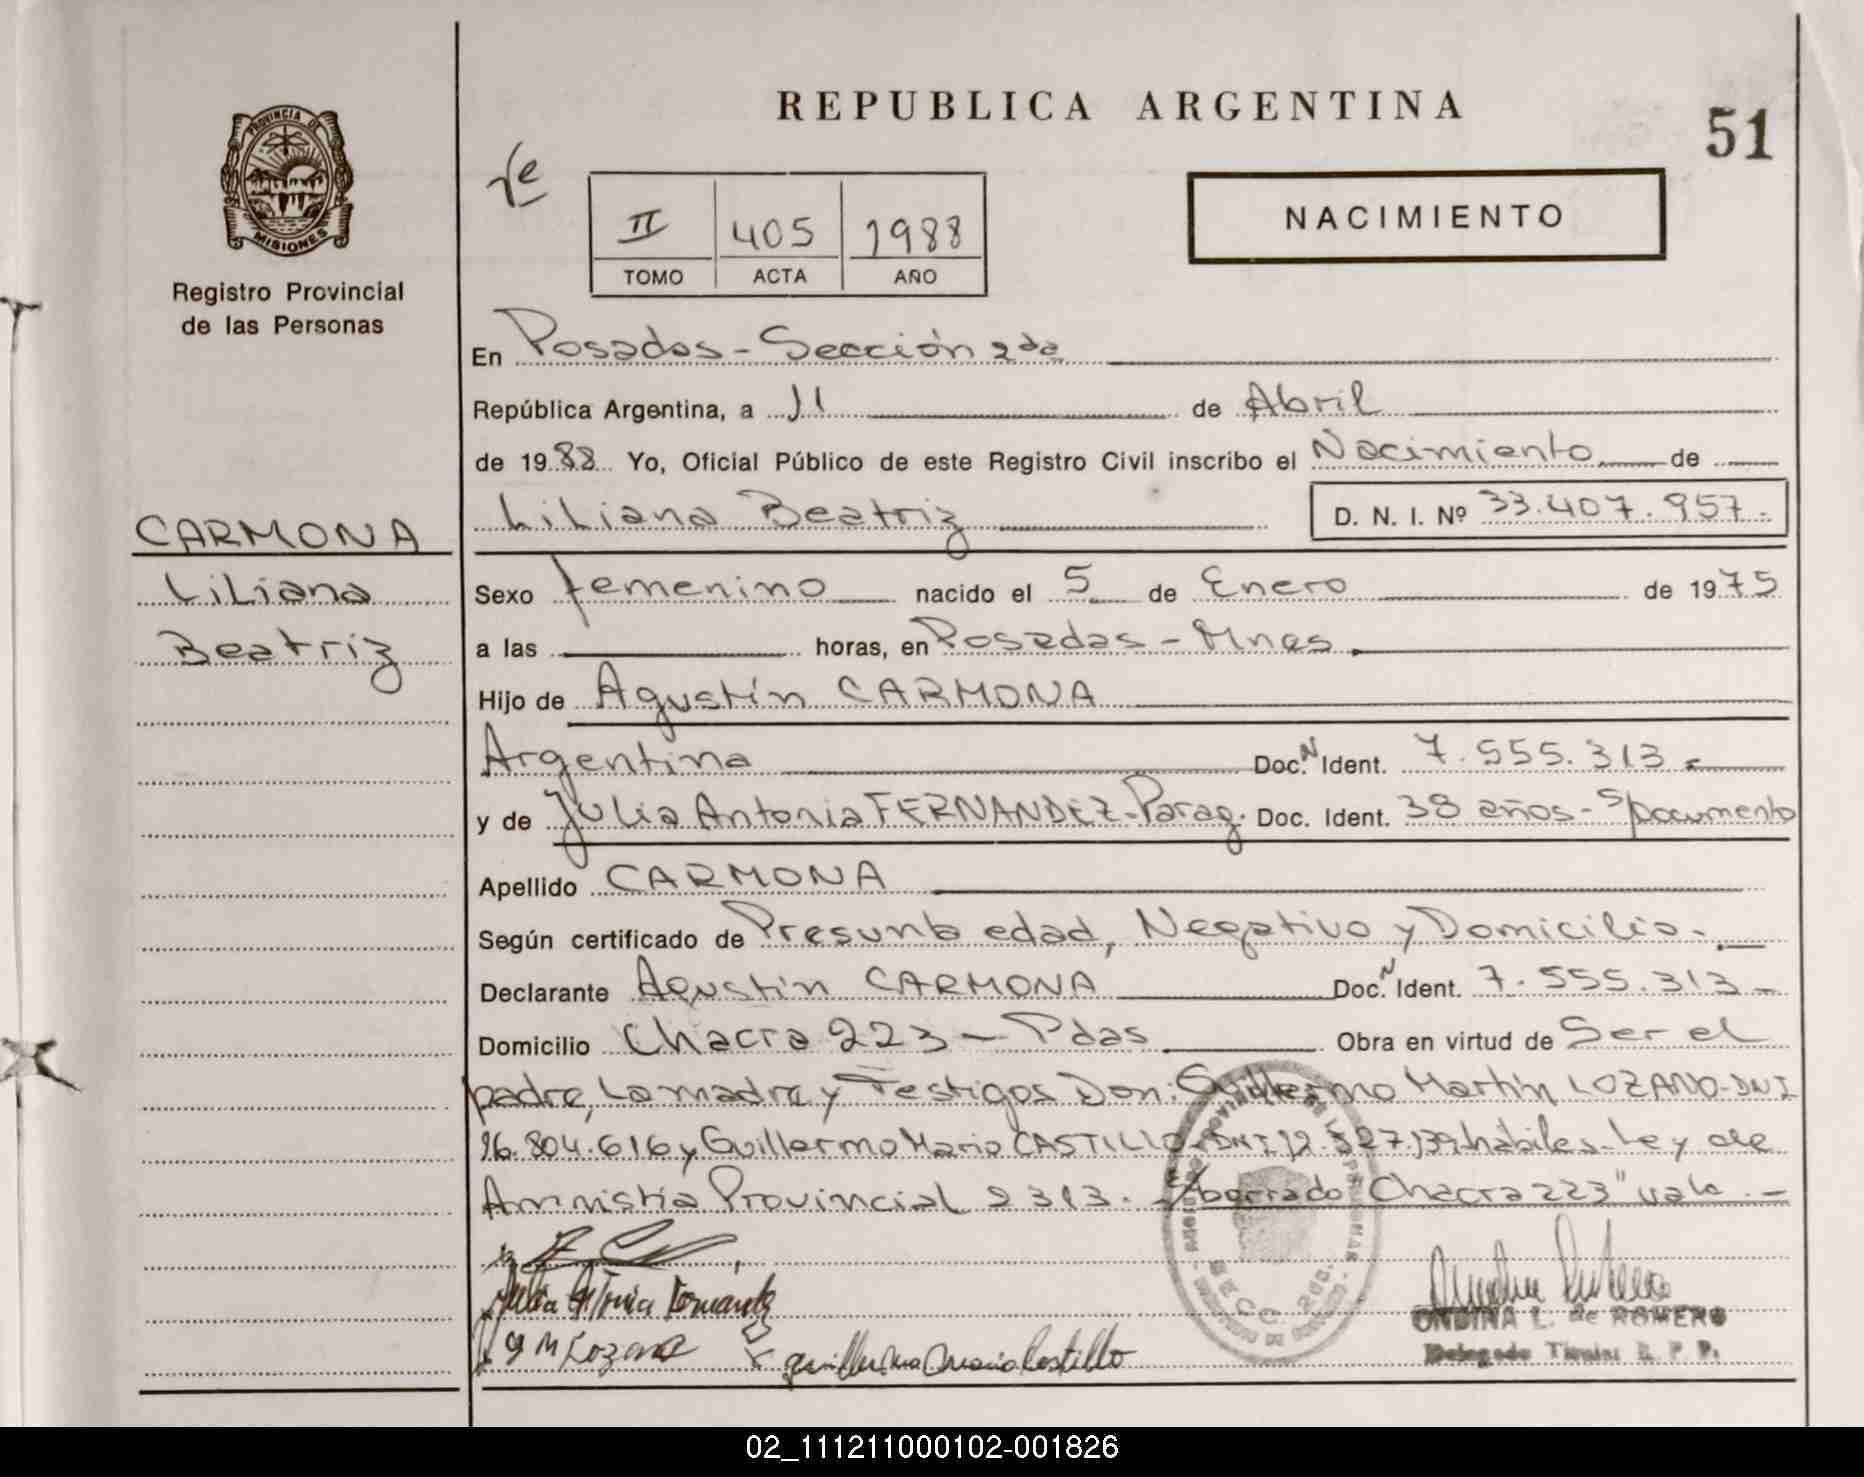 PROVINCIA DE
MISIONES
Registro Provincial
de las Personas
REPUBLICA ARGENTINA
51
II 405 1988
TOMO ACTA AÑO
NACIMIENTO
En Posadas - Sección 2da
República Argentina, a 11 de Abril
de 1988 Yo, Oficial Público de este Registro Civil inscribo el Nacimiento de
Liliana Beatriz D. N. I. Nº 33.407.957.-
CARMONA
Liliana
Beatriz
Sexo femenino nacido el 5 de Enero de 1975
a las horas, en Posadas - Mnes.
Hijo de Agustín CARMONA
Argentina Doc. N Ident. 7.555.313.-
y de Julia Antonia FERNANDEZ - Parag. Doc. Ident. 38 años - s/Documento
Apellido CARMONA
Según certificado de Presunta edad, Negativo y Domicilio.-
Declarante Agustín CARMONA Doc. N Ident. 7.555.313 -
Domicilio Chacra 223 - Pdas Obra en virtud de Ser el
padre, La madre y Testigos Don: Guillermo Martín LOZANO - DNI
16.804.616 y Guillermo Mario CASTILLO - DNI 12.527.139 hábiles - Ley de
Amnistía Provincial 2313. - s/borrado "Chacra 223" vale. -
Julia Antonia Fernandez
G M Lozano
Guillermo Mario Castillo
SECC. 2da.
ONDINA L. de ROMERO
Delegado Titular R. P. P.
02_111211000102-001826